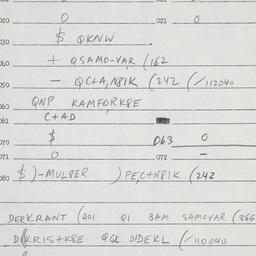 020 0 021 0
030 $ QKNW
040 + QSAMO-VAR (162
050 - QC+A,N81K (242 (/112040
060 QNP KAMFORK8E
061 C+AD
070 $ 063 0
071 0 072 -
080 $)-MUL8ER )PE,C+N81K (242
DERKRANT (401 Q1 8AM SAMOVAR (366
D/KRIS+K8E QGL DIDEKL (/110040